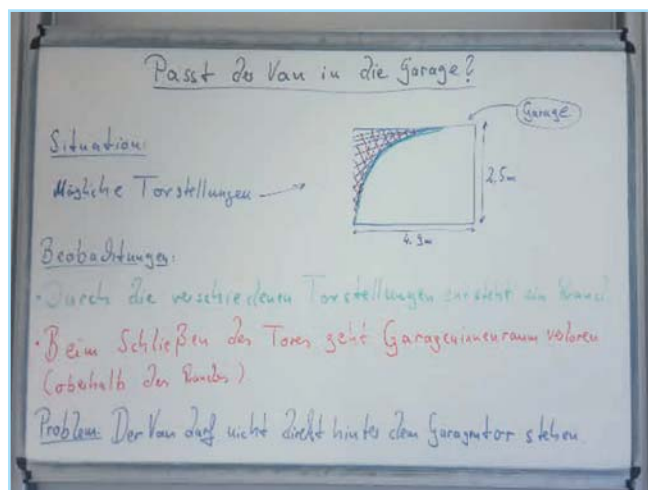 Passt der Van in die Garage?
Garage
Situation:
Mögliche Torstellungen
2,5m
4,9m
Beobachtungen:
• Durch die verschiedenen Torstellungen entsteht ein Rand
• Beim Schließen des Tores geht Garageninnenraum verloren
(oberhalb des Randes)
Problem: Der Van darf nicht direkt hinter dem Garagentor stehen.